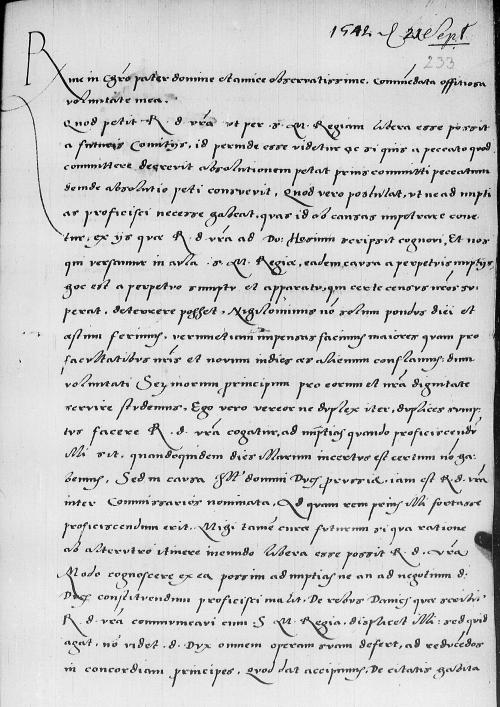 1542 22 Sept
233
Rme in Chro pater domine et amice observatissime. Commendata offitiosa
voluntate mea.
Quod petit R. d. vra ut per S. M. Regiam libera esse possit
a futuris Comitijs, id perinde esse videtur ac si quis a peccato quod
committere decrevit absolutionem petat prius committi peccatum
deinde absolutio peti consuevit. Quod vero postulat, ut ne ad nupti
as proficisci necesse habeat, quas id ob causas impetrare cone
tur, ex ijs quae R. d. vra ad Do: Hosium scripsit cognovi. Et nos
qui versamur in aula S. M. Regiae, eadem causa a perpetuis nuptijs
hoc est a perpetuo sumptu et apparatu, qui certe census nros su
perat, deterrere posset. Nihilominus non solum pondus diei et
aestum ferimus, verumetiam impensas facimus maiores quam pro
facultatibus nris et novum indies aes alienum conflamus: dum
voluntati Ser morum principum pro eorum et nra dignitate
servire studemus. Ego vero vereor ne duplex iter, duplices sump
tus facere R. d. vra cogatur, ad nuptias quando proficiscendum
illi sit, quandoquidem dies illarum incertus est certum non ha
bemus. Sed in causa Illi domini Ducis Prussiae, iam est R. d. vra
inter Commissarios nominata. Ad quam rem prius illi fortasse
proficiscendum erit. Mihi tamen curae futurum si qua ratione
ab alterutro itinere ineundo libera esse possit R. d. vra
Modo cognoscere ex ea possim ad nuptias ne an ad negotium d:
Ducis constituendum proficisci malit. De rebus Danicis quae scribit
R. d. vra communicavi cum S. M. Regia, displicet illi: sed quid
agat, non videt. d. Dux omnem operam suam defert, ad reducendos
in concordiam principes. Quod dat accipimus. De citatis habita